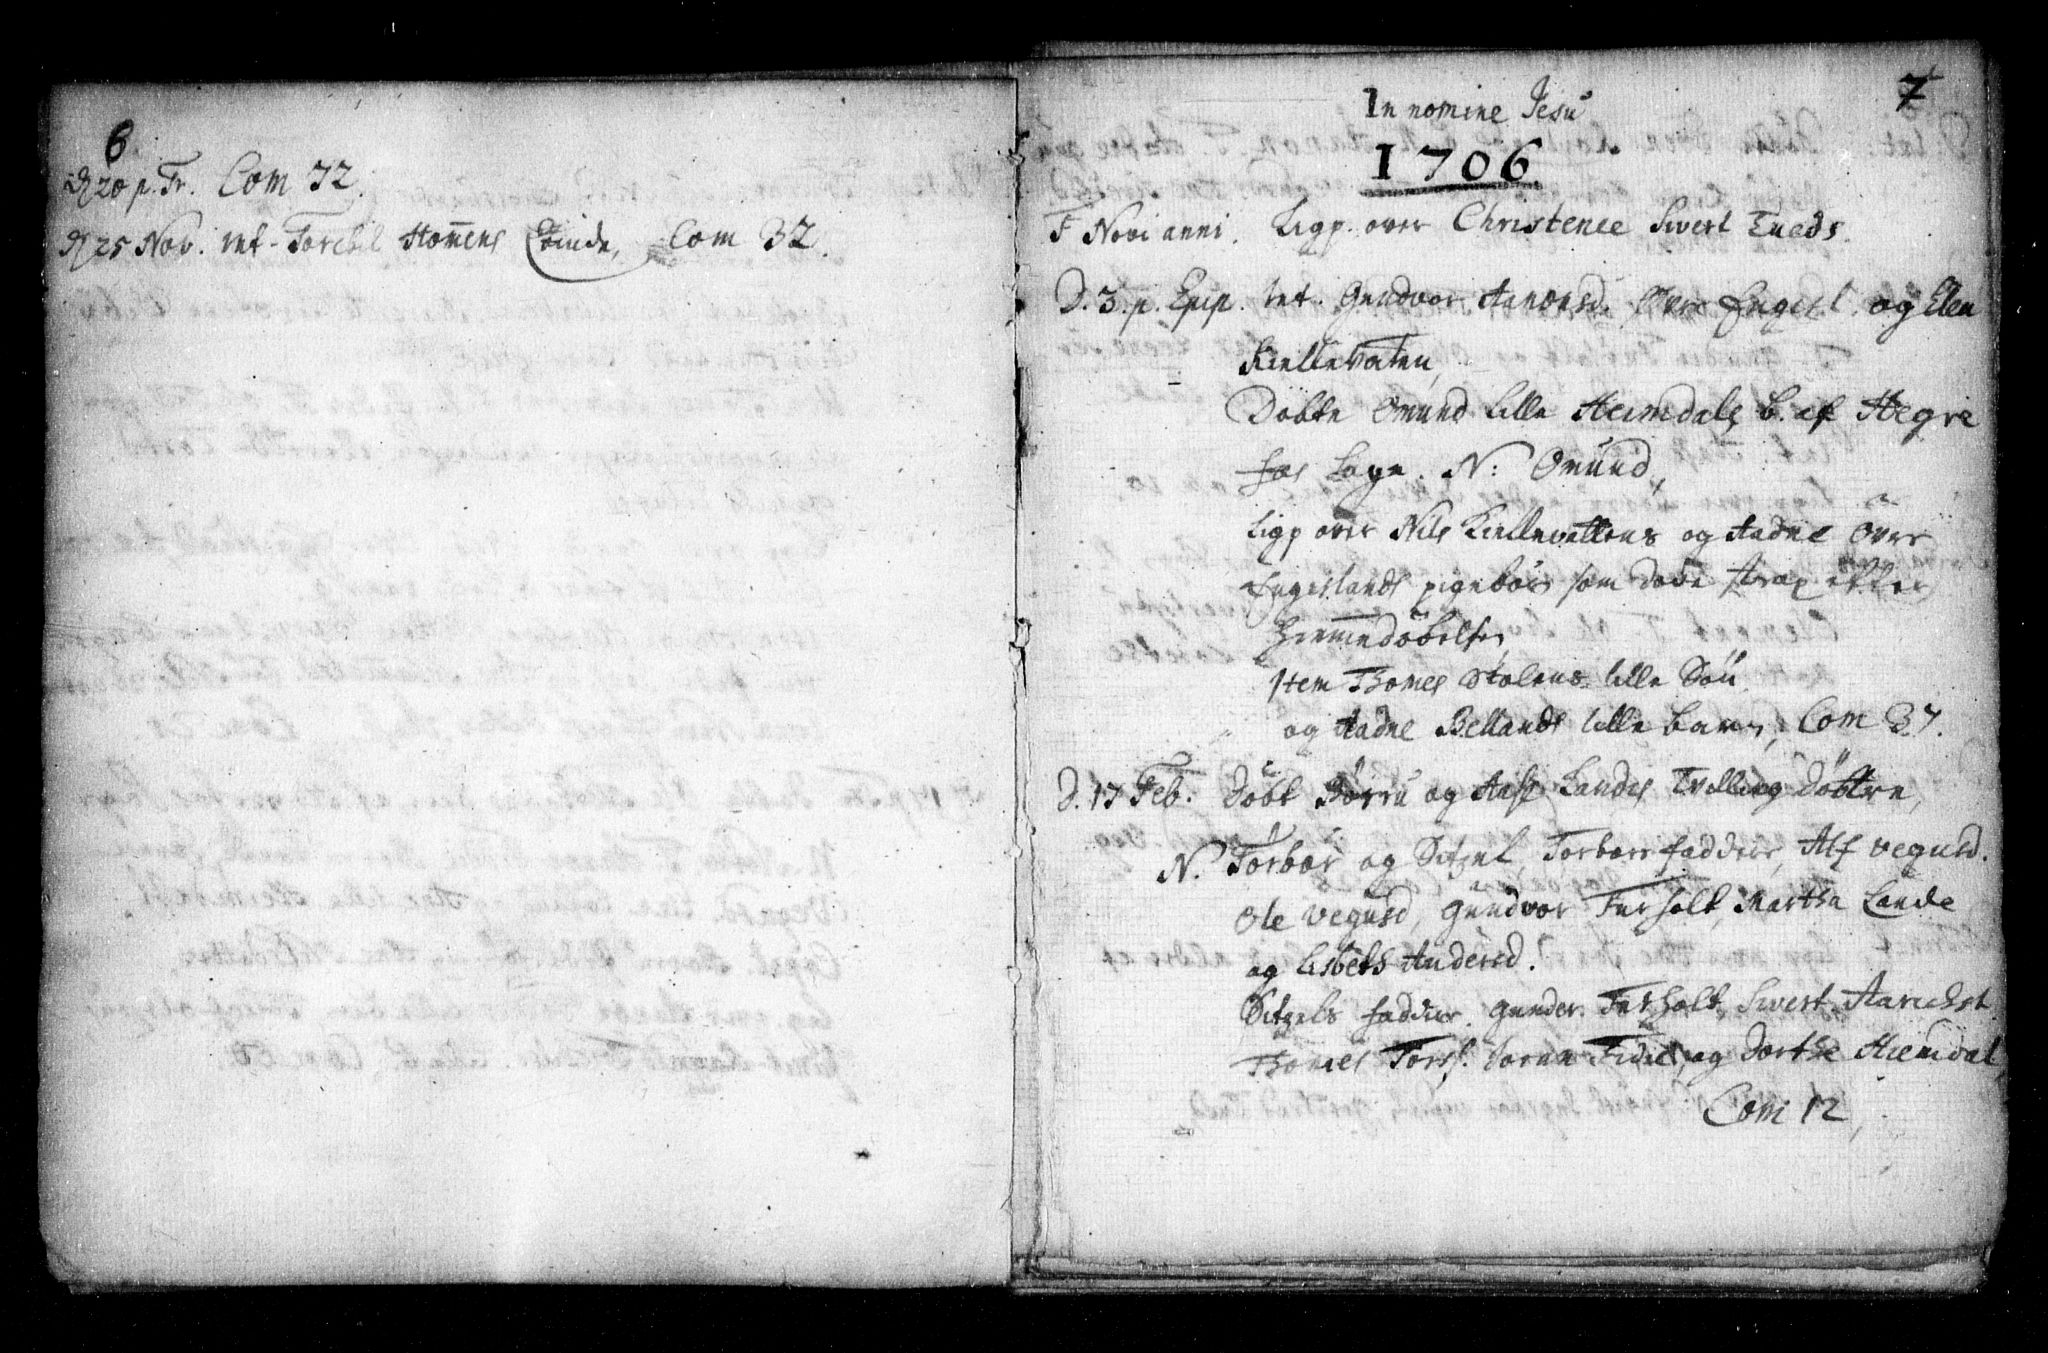 6
D 20 p. Tr. Com 32.
D 25 Nov. int. Torchil Homens Quinde, Com 32.
7
In nomine Jesu
1706
F Novi anni. Ligp. over Christence Sivert Tveds.
D. 3. p. Epip. Int. Gundvor Aanensd. Øvre Engesl. og Elen
Kiellevaten,
Döbte Omund lille Heimdals b. af Hegre
fos Sogn. N: Omund,
Ligp over Nils Kiellevattens og Aadne Övre
Engeslands pigebörn som döde strax efter
Hiemmedöbelsen,
Item Thomes Stölens lille Sön
og Aadne Bellands lille barn, Com 37.
D. 17 Feb. Döbt Börru og Aase Landes Tvilling Döttre,
N. Torbor og Sitzel Torbors faddere, Alf Vegusd.
Ole Vegusd, Gundvor Furholt, Martha Lande
og Lisbeth Andersd.
Sitzels faddere. Gunder Furholt, Sivert Aanichst
Thomes Torss. Joran og Dorthe Hiemdal
Com 12,